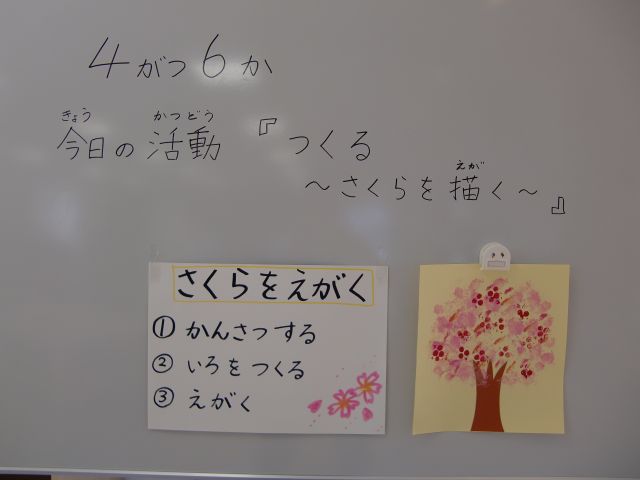 4がつ6か
きょう かつどう
今日の活動『つくる
えが
〜さくらを描く〜』
さくらをえがく
① かんさつする
② いろをつくる
③ えがく